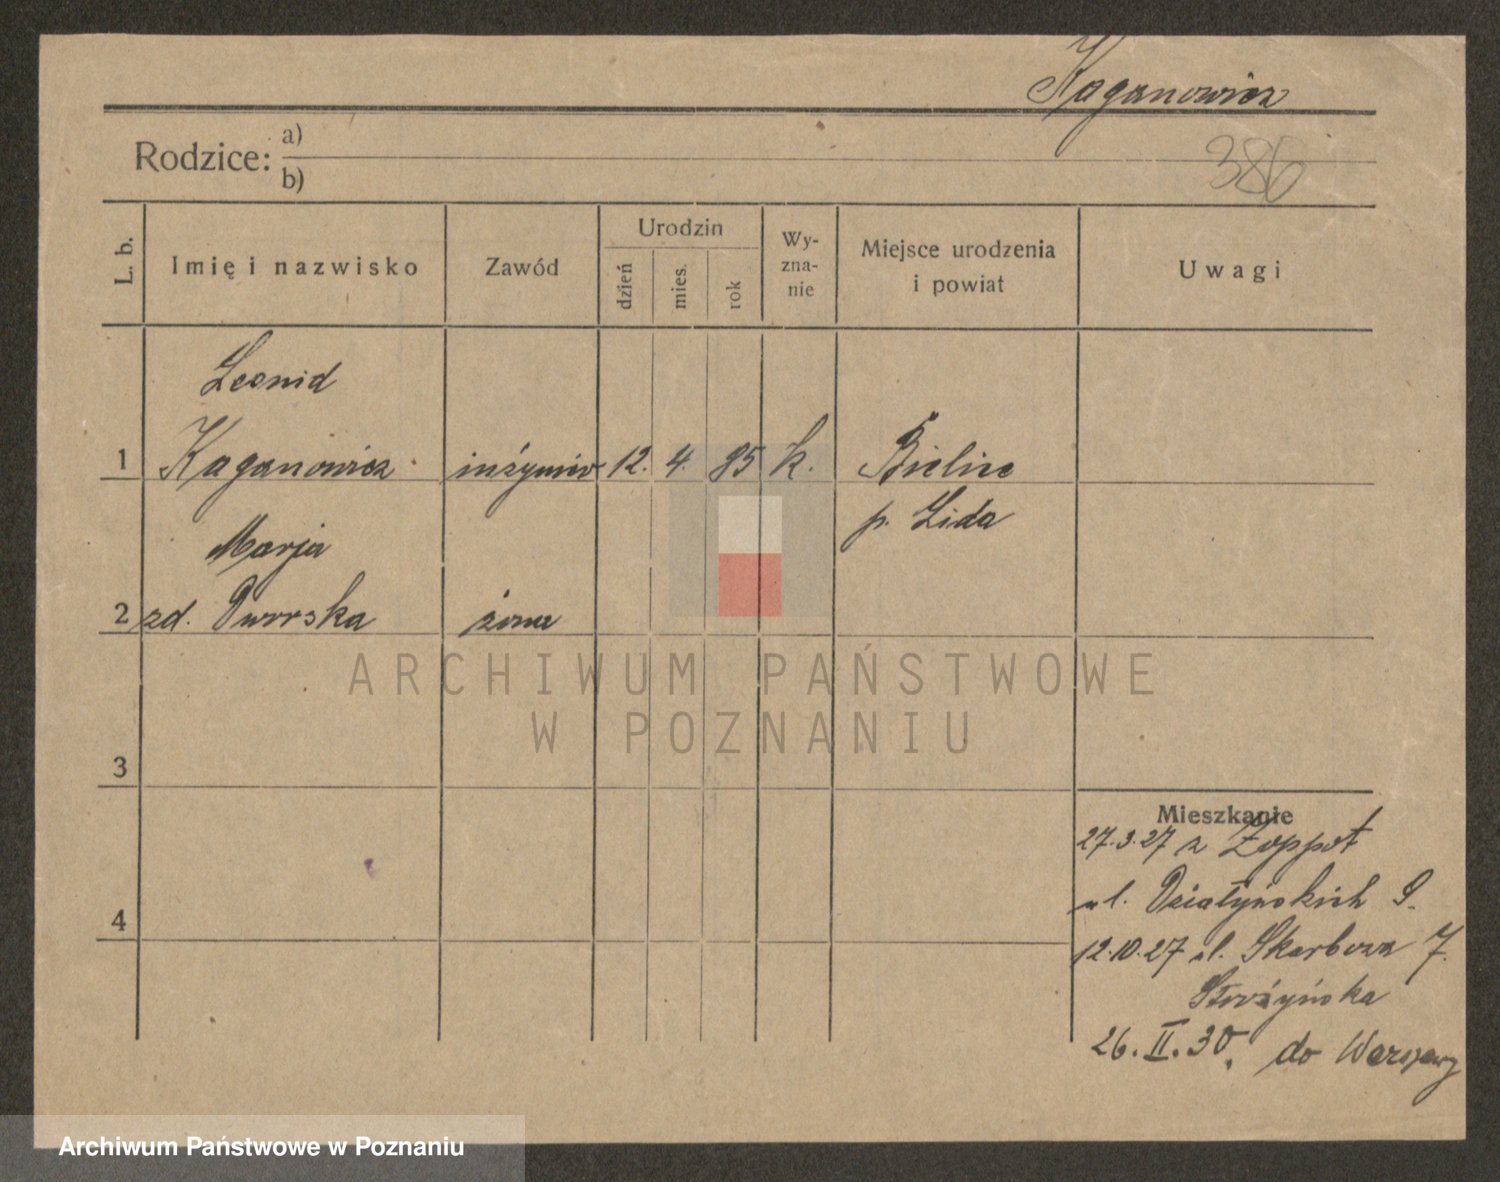 Kaganowicz
Rodzice: a)
b)
386
L. b.
Imię i nazwisko
Zawód
Urodzin
dzień
mies.
rok
Wy-
zna-
nie
Miejsce urodzenia
i powiat
Uwagi
Leonid
1 Kaganowicz inżynier 12. 4. 85 k. Bielice
p. Lida
Marja
2 zd. Dworska żona
ARCHIWUM PAŃSTWOWE
W POZNANIU
3
Mieszkanie
27.3.27 z Zoppot
ul. Działyńskich 9.
4
12.10.27 ul. Skarbowa 7.
26.II.30. do Warszawy
Archiwum Państwowe w Poznaniu